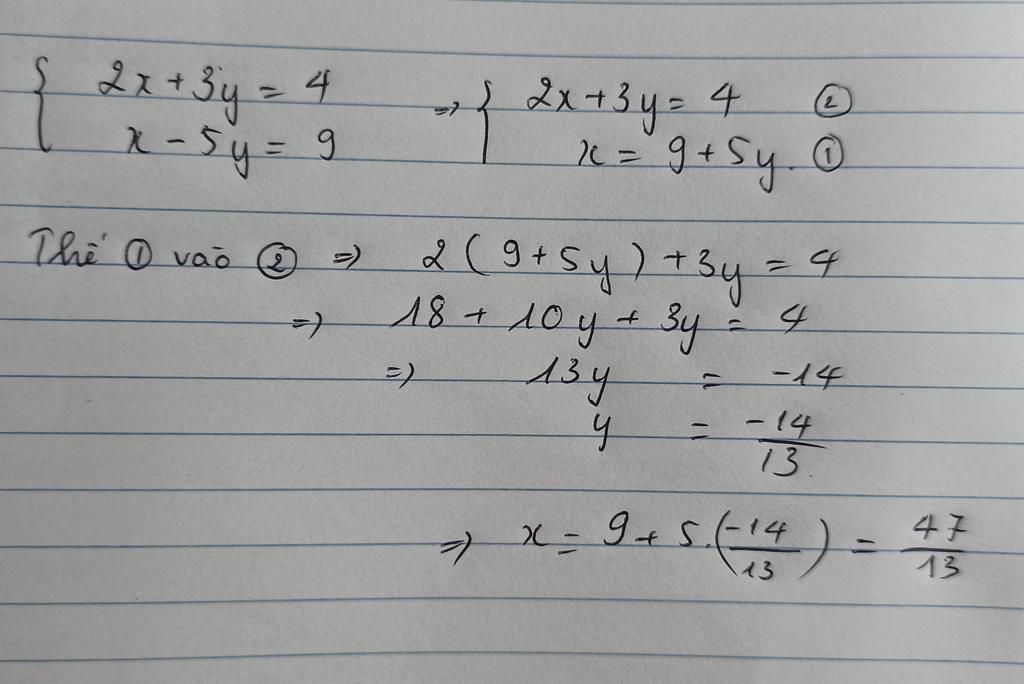 { 2x + 3y = 4 => { 2x + 3y = 4 ②
x - 5y = 9 x = 9 + 5y. ①
Thế ① vào ② => 2(9 + 5y) + 3y = 4
=> 18 + 10y + 3y = 4
=> 13y = -14
y = -14/13.
=> x = 9 + 5.(-14/13) = 47/13